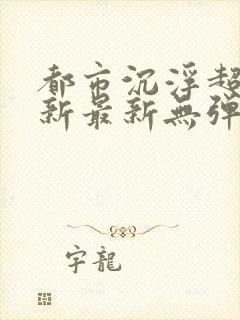 都市沉浮超
新最新無弹
宇龍